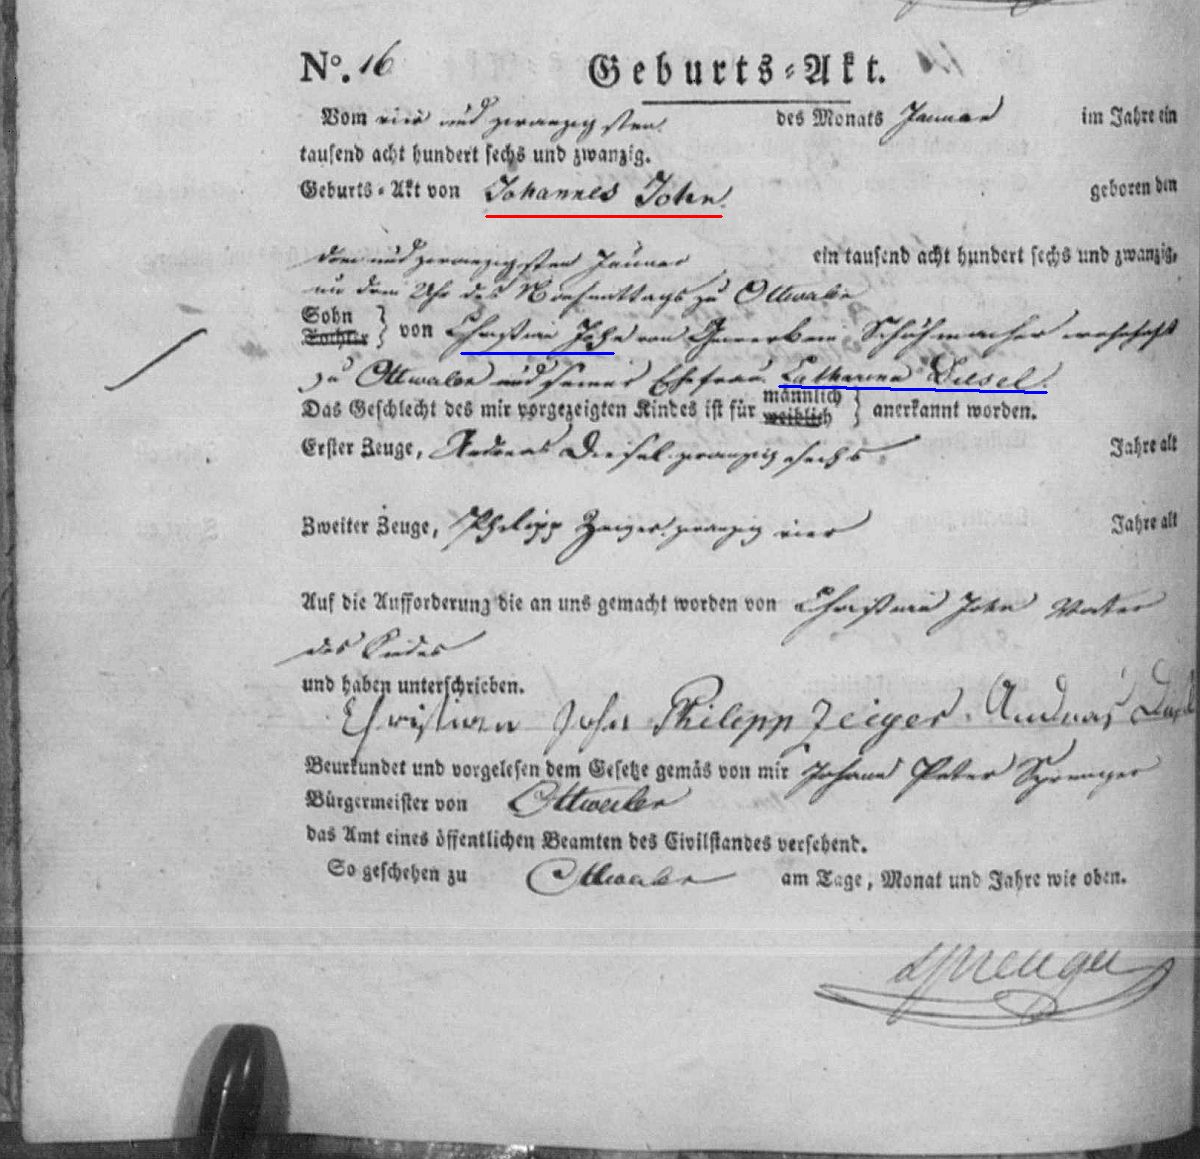 N°. 16 Geburts-Akt.
Vom vier und zwanzigsten des Monats Januar im Jahre ein
tausend acht hundert sechs und zwanzig.
Geburts-Akt von Johannes John geboren den
drei und zwanzigsten Januar ein tausend acht hundert sechs und zwanzig,
um drei Uhr des Nachmittags zu Ottweiler
Sohn
Tochter } von Christian John von Gewerbe ein Schuhmacher wohnhaft
zu Ottweiler und seiner Ehefrau Catharina Diesel.
Das Geschlecht des mir vorgezeigten Kindes ist für männlich
weiblich } anerkannt worden.
Erster Zeuge, Andreas Diesel zwanzig sechs Jahre alt
Zweiter Zeuge, Philipp Zeiger zwanzig vier Jahre alt
Auf die Aufforderung die an uns gemacht worden von Christian John Vater
des Kindes
und haben unterschrieben.
Christian John Philipp Zeiger Andreas
Beurkundet und vorgelesen dem Gesetze gemäs von mir Johann Peter Sprenger
Bürgermeister von Ottweiler
das Amt eines öffentlichen Beamten des Civilstandes versehend.
So geschehen zu Ottweiler am Tage, Monat und Jahre wie oben.
Sprenger